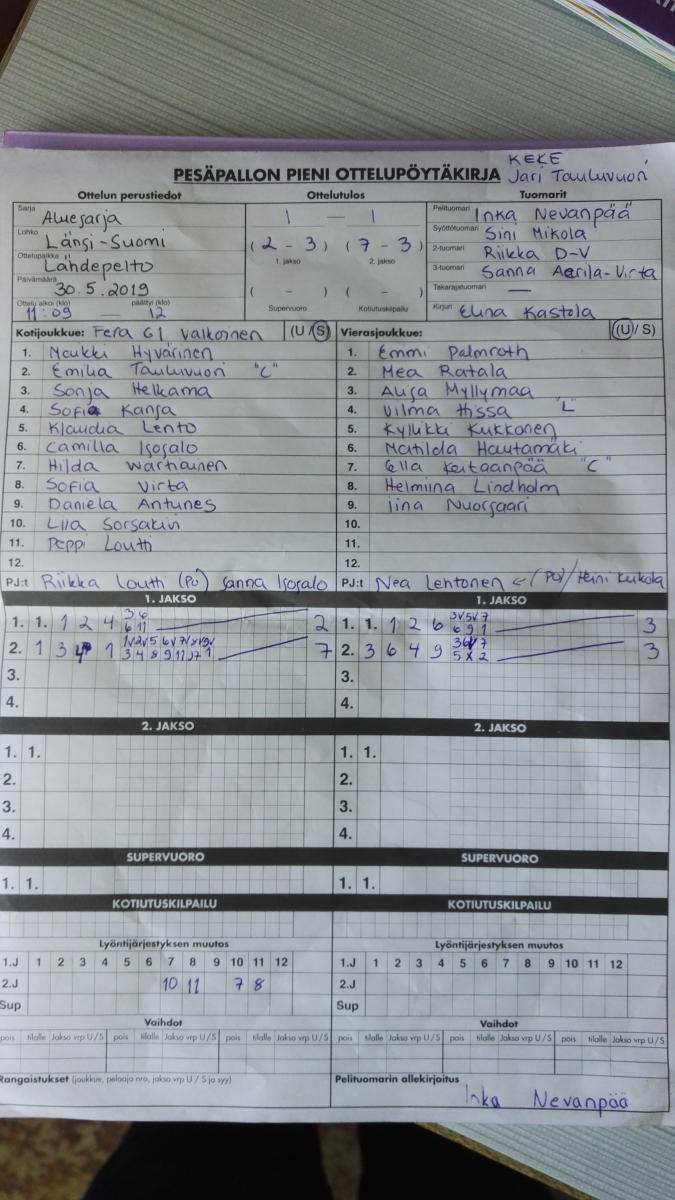 KEKE
PESÄPALLON PIENI OTTELUPÖYTÄKIRJA Jari Tauluvuori
Ottelun perustiedot Ottelutulos Tuomarit
Sarja Aluesarja 1 — 1 Pelituomari Inka Nevanpää
Lohko Länsi-Suomi (2 - 3) (7 - 3) Syöttötuomari Sini Mikola
1. jakso 2. jakso
Ottelupaikka Lähdepelto 2-tuomari Riikka D-V
Päivämäärä 30.5.2019 ( - ) ( - ) 3-tuomari Sanna Aerila-Virta
Takarajatuomari —
Ottelu alkoi (klo) päättyi (klo) Supervuoro Kotiutuskilpailu
11:09 — 12 Kirjuri Elina Kastola
Kotijoukkue: Fera G1 Valkoinen (U/S) Vierasjoukkue: (U/S)
1. Noukki Hyvärinen 1. Emmi Palmroth
2. Emilia Tauluvuori "C" 2. Mea Ratala
3. Sonja Helkama 3. Alisa Myllymaa
4. Sofia Kansa 4. Vilma Hissa "L"
5. Klaudia Lento 5. Kylukki Kukkonen
6. Camilla Isosalo 6. Matilda Hautamäki
7. Hilda Wartiainen 7. Cella Keitaanpää "C"
8. Sofia Virta 8. Helmiina Lindholm
9. Daniela Antunes 9. Iina Nuorsaari
10. Liia Sorsakin 10.
11. Peppi Loutti 11.
12. 12.
PJ:t Riikka Loutti (PJ) Sanna Isosalo PJ:t Nea Lehtonen ← (PJ) / Heini Kukola
1. JAKSO 1. JAKSO
1. 1. 1 2 4 3 6 2 1. 1. 1 2 6 3V5V7 3
6 11 6 9 1
2. 1 3 4 1 7 2. 3 6 4 9 3
3 4 8 9 11 5 X 2
3. 3.
4. 4.
2. JAKSO 2. JAKSO
1. 1. 1. 1.
2. 2.
3. 3.
4. 4.
SUPERVUORO SUPERVUORO
1. 1. 1. 1.
KOTIUTUSKILPAILU KOTIUTUSKILPAILU
Lyöntijärjestyksen muutos Lyöntijärjestyksen muutos
1.J 1 2 3 4 5 6 7 8 9 10 11 12 1.J 1 2 3 4 5 6 7 8 9 10 11 12
2.J 10 11 7 8 2.J
Sup Sup
Vaihdot Vaihdot
pois tilalle Jakso vrp U/S pois tilalle Jakso vrp U/S pois tilalle Jakso vrp U/S pois tilalle Jakso vrp U/S pois tilalle Jakso vrp U/S pois tilalle Jakso vrp U/S
Rangaistukset (joukkue, pelaaja nro, jakso vrp U / S ja syy) Pelituomarin allekirjoitus
Inka Nevanpää